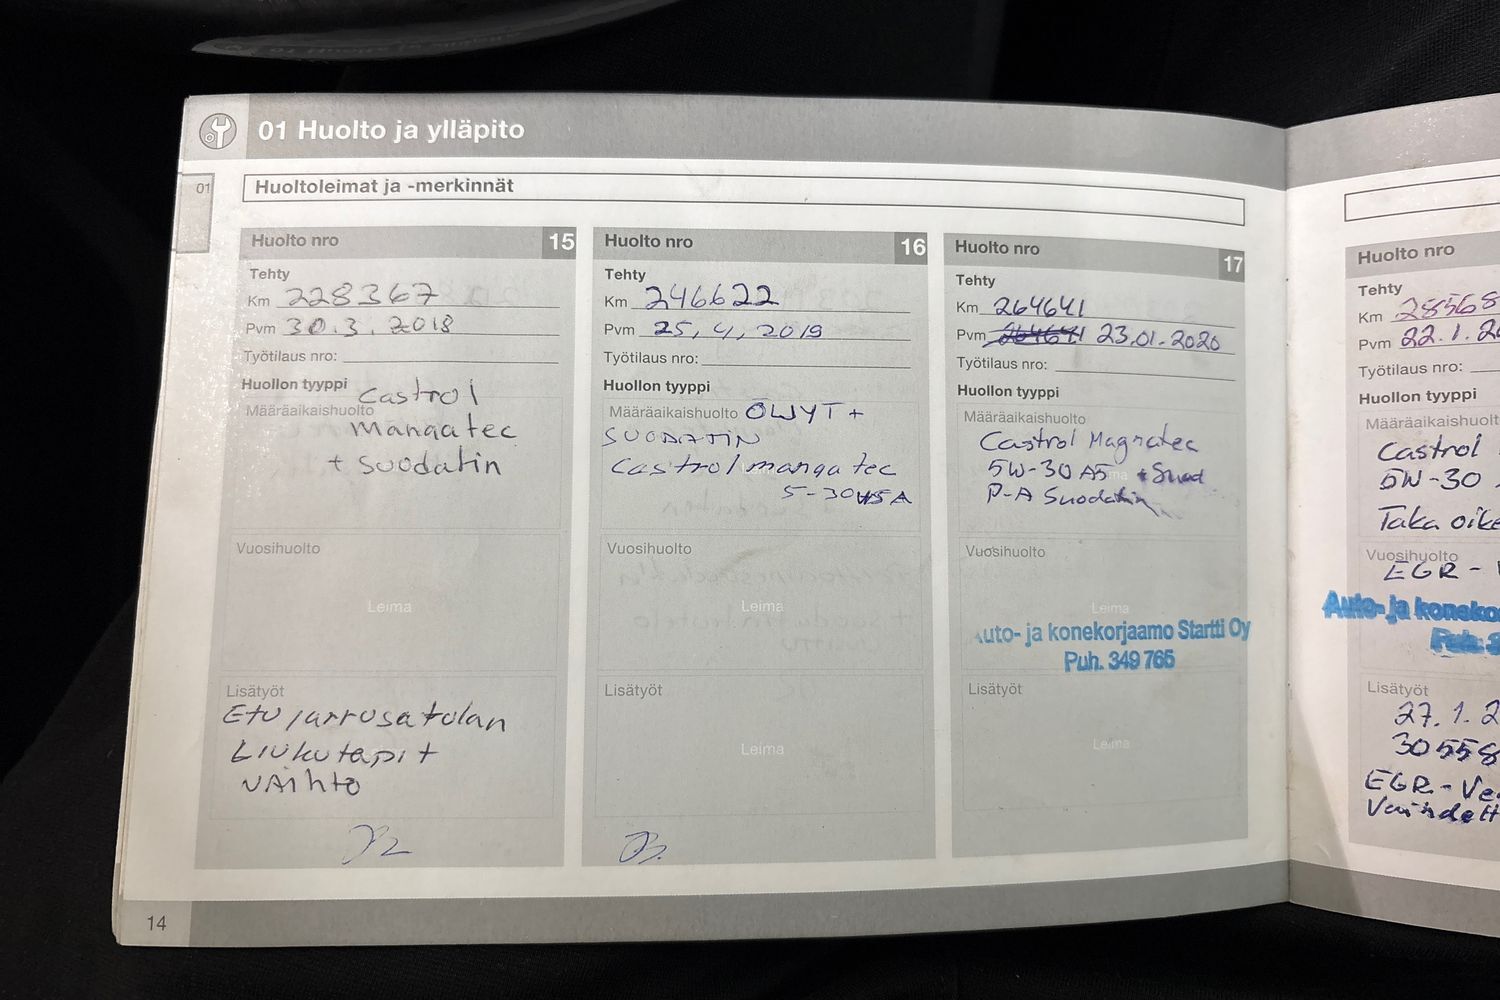 01 Huolto ja ylläpito
01
Huoltoleimat ja -merkinnät
Huolto nro 15
Tehty
Km 228367
Pvm 30.3.2018
Työtilaus nro:
Huollon tyyppi
Castrol
Määräaikaishuolto
mangatec
+ suodatin
Vuosihuolto
Leima
Lisätyöt
Etujarrusatulan
Liukutapit
vaihto
14
Huolto nro 16
Tehty
Km 246622
Pvm 25.4.2019
Työtilaus nro:
Huollon tyyppi
Määräaikaishuolto ÖLJYT +
SUODATIN
Castrol mangatec
5-30 A
Vuosihuolto
Leima
Lisätyöt
Leima
Huolto nro 17
Tehty
Km 264641
Pvm 264641 23.01.2020
Työtilaus nro:
Huollon tyyppi
Määräaikaishuolto
Castrol Magnatec
5W-30 A5 + Suod
P-A Suodatin
Vuosihuolto
Leima
Auto- ja konekorjaamo Startti Oy
Puh. 349 765
Lisätyöt
Leima
Huolto nro
Tehty
Km 28568
Pvm 22.1.2
Työtilaus nro:
Huollon tyyppi
Määräaikaishuolto
Castrol
5W-30
Taka oike
Vuosihuolto
EGR-
Auto- ja koneko
Puh. 3
Lisätyöt
27.1.2
30558
EGR-Ve
Vaihdett